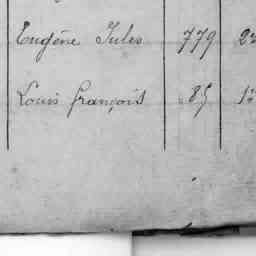 Eugène Jules 779
Louis François 85